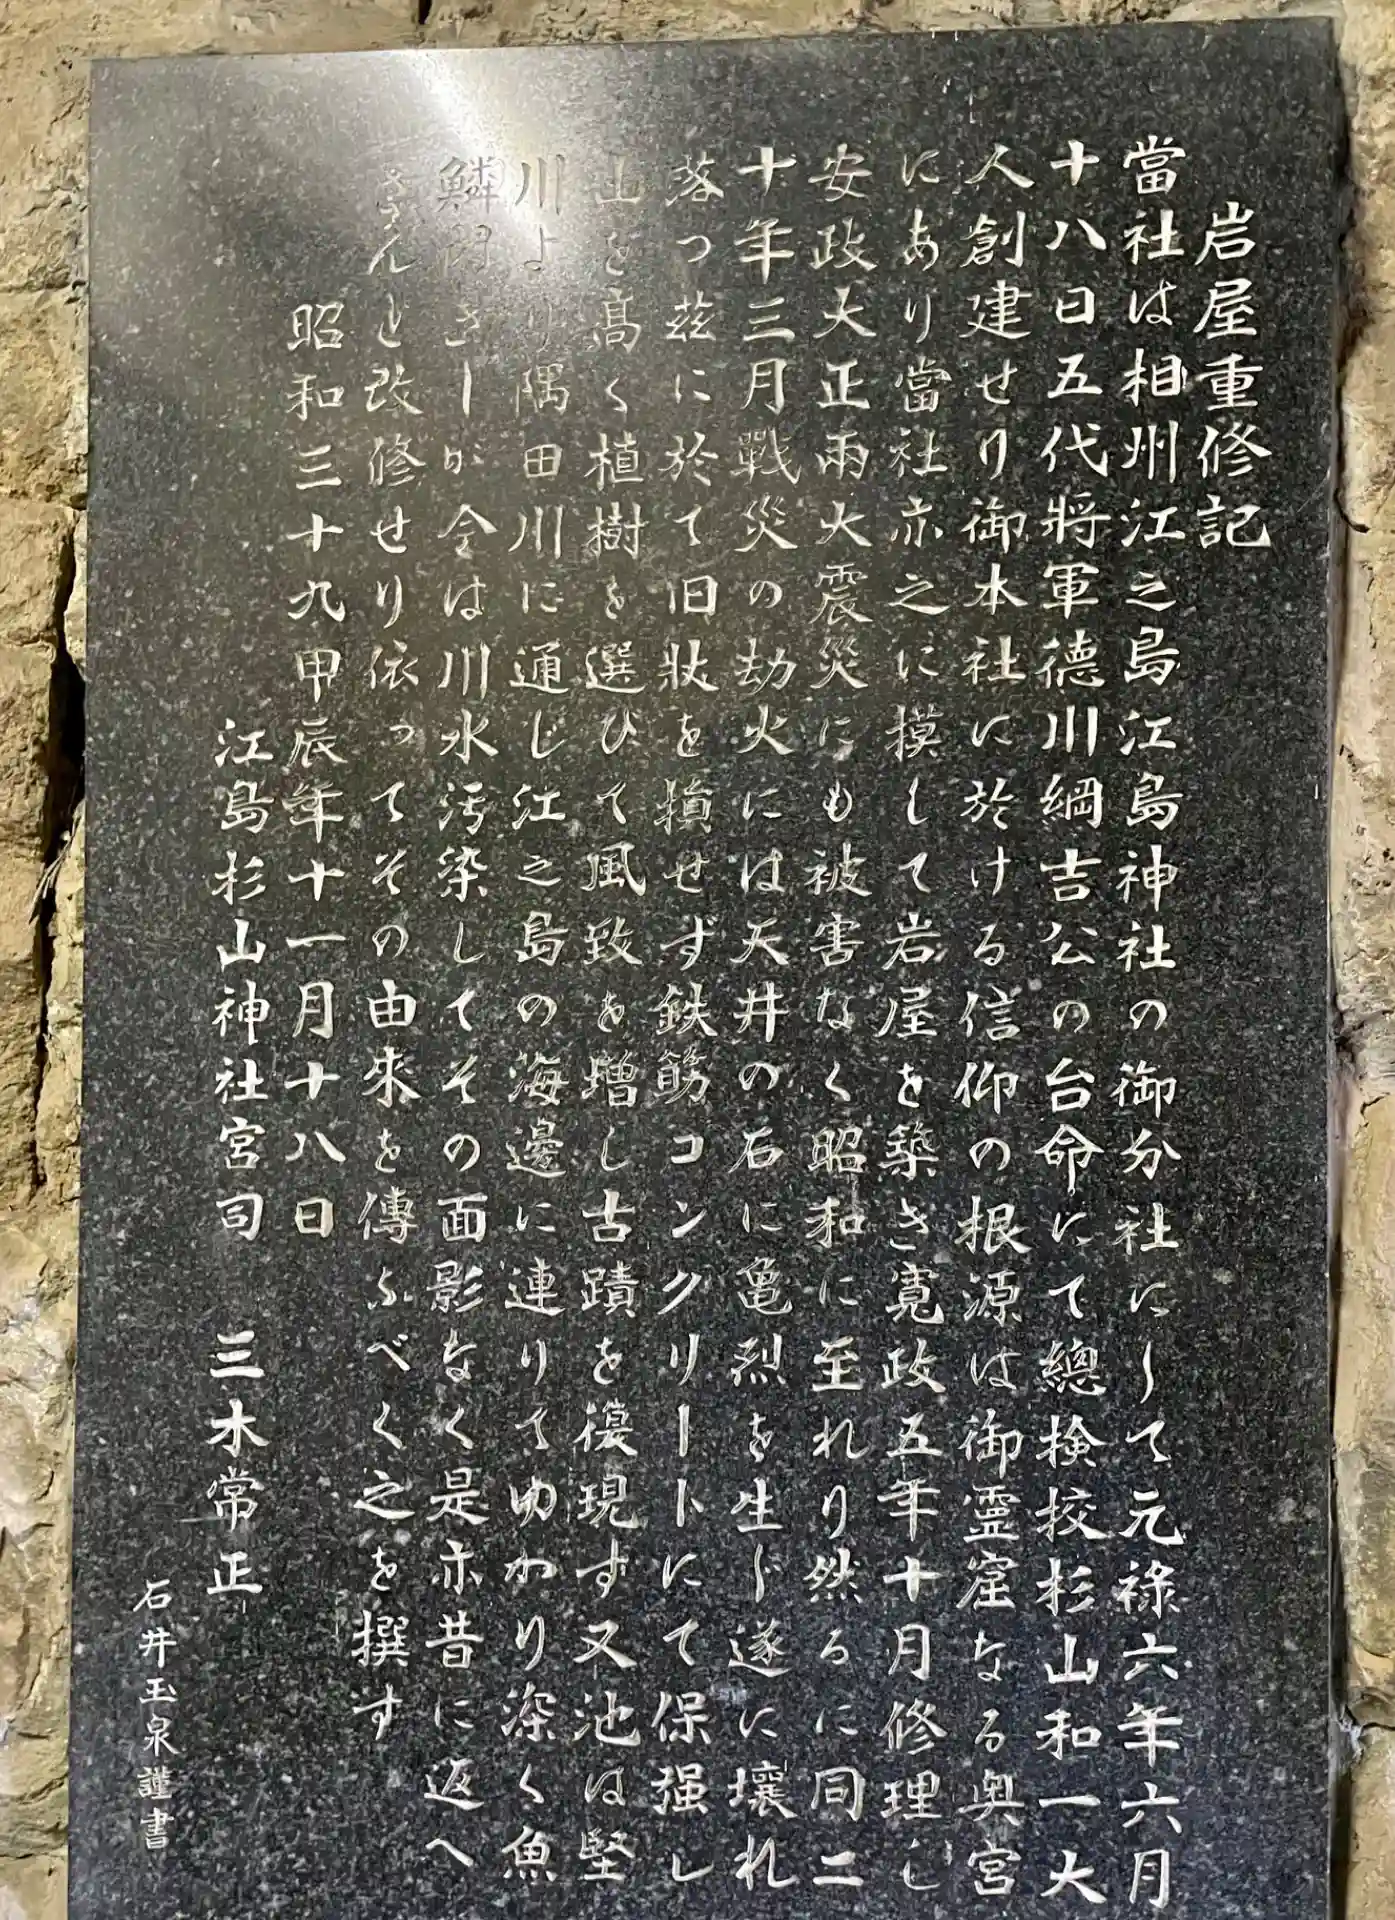 岩屋重修記
當社は相州江之島江島神社の御分社にして元祿六年六月
十八日五代將軍德川綱吉公の台命にて總検挍杉山和一大
人創建せり御本社に於ける信仰の根源は御霊窟なる奥宮
にあり當社亦之に摸して岩屋を築き寛政五年十月修理し
安政大正両火震災にも被害なく昭和に至れり然るに同二
十年三月戰災の劫火には天井の石に亀烈を生じ遂に壊れ
落つ茲に於て旧状を損せず鉄筋コンクリートにて保强し
山を髙く植樹を選ひて風致を増し古蹟を復現す又池は堅
川より隅田川に通じ江之島の海邊に連りてゆわり深く魚
鱗閃きしが今は川水汚染してその面影なく是亦昔に返へ
さんと改修せり依ってその由来を傳ふべく之を撰す
昭和三十九甲辰年十一月十八日
江島杉山神社宮司 三木常正
石井玉泉謹書